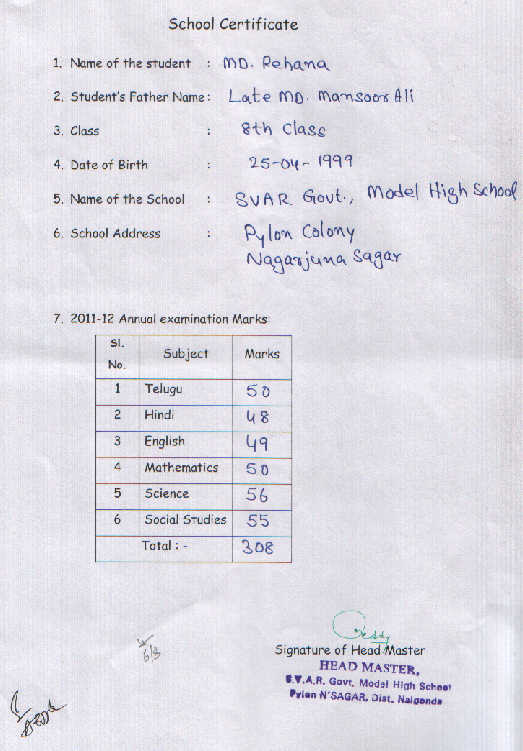 School Certificate
1. Name of the student : MD. Rehana
2. Student's Father Name : Late MD. Mansoor Ali
3. Class : 8th Class
4. Date of Birth : 25-04-1999
5. Name of the School : SVAR Govt., Model High School
6. School Address : Pylon Colony
Nagarjuna Sagar
7. 2011-12 Annual examination Marks:
Sl. No. Subject Marks
1 Telugu 50
2 Hindi 48
3 English 49
4 Mathematics 50
5 Science 56
6 Social Studies 55
Total : - 308
Signature of Head Master
HEAD MASTER,
S.V.A.R. Govt. Model High School
Pylon N'SAGAR, Dist. Nalgonda